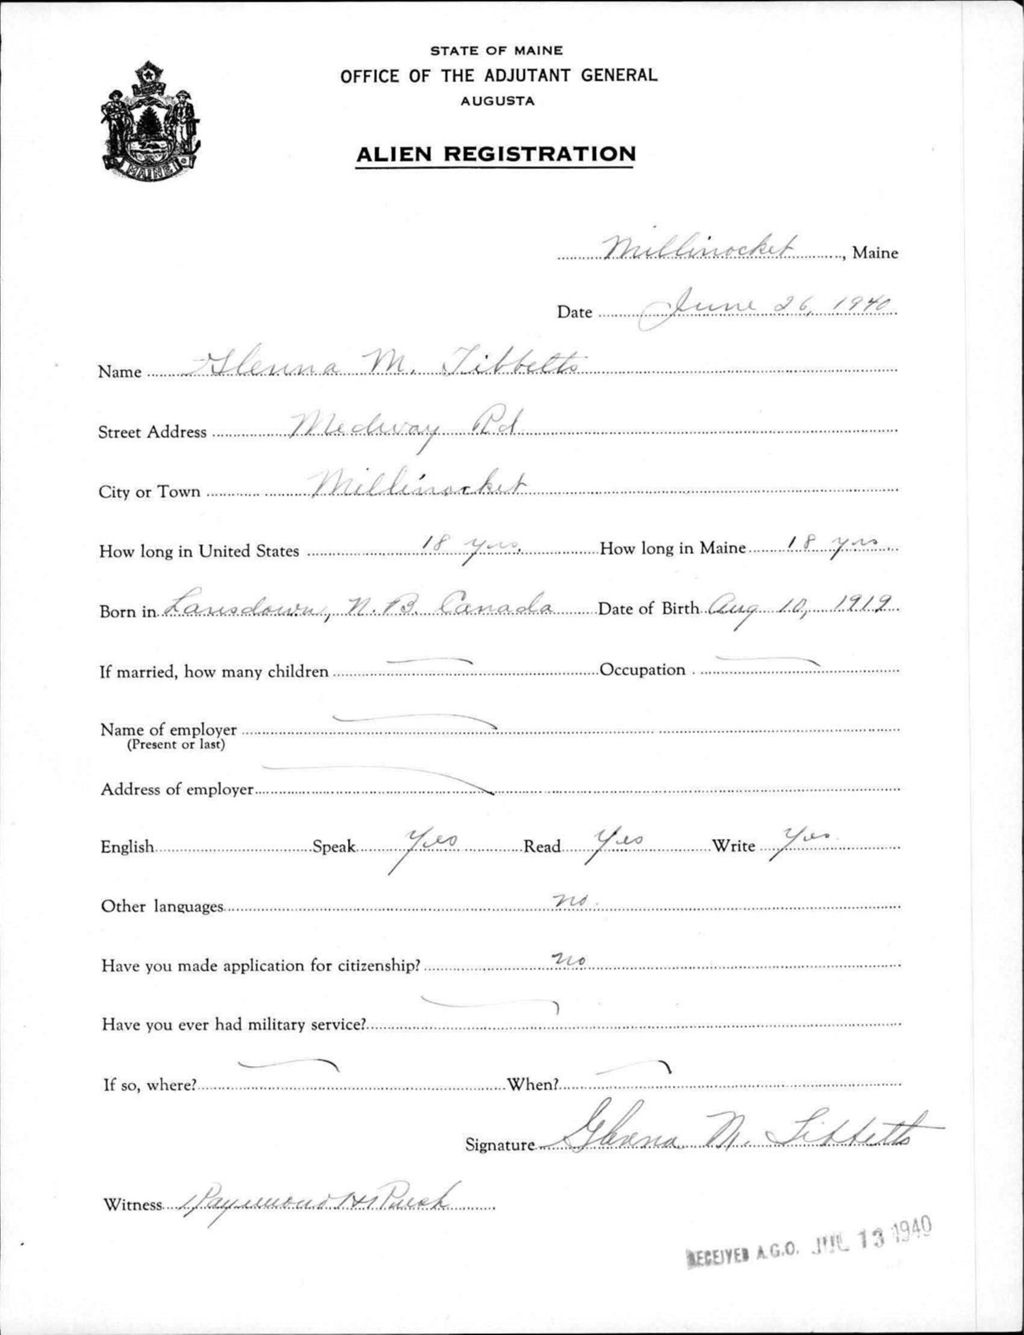 STATE OF MAINE
OFFICE OF THE ADJUTANT GENERAL
AUGUSTA
ALIEN REGISTRATION
MAINE
Millinocket, Maine
Date June 26, 1940
Name Glenna M. Tibbetts
Street Address Medway Rd
City or Town Millinocket
How long in United States 18 yrs. How long in Maine 18 yrs
Born in Lansdown, N.B. Canada Date of Birth Aug 10, 1919
If married, how many children Occupation
Name of employer
(Present or last)
Address of employer
English Speak Yes Read Yes Write Yes
Other languages no.
Have you made application for citizenship? no
Have you ever had military service?
If so, where? When?
Signature Glenna M. Tibbetts
Witness Raymond H
RECEIVED A.G.O. JUL 13 1940